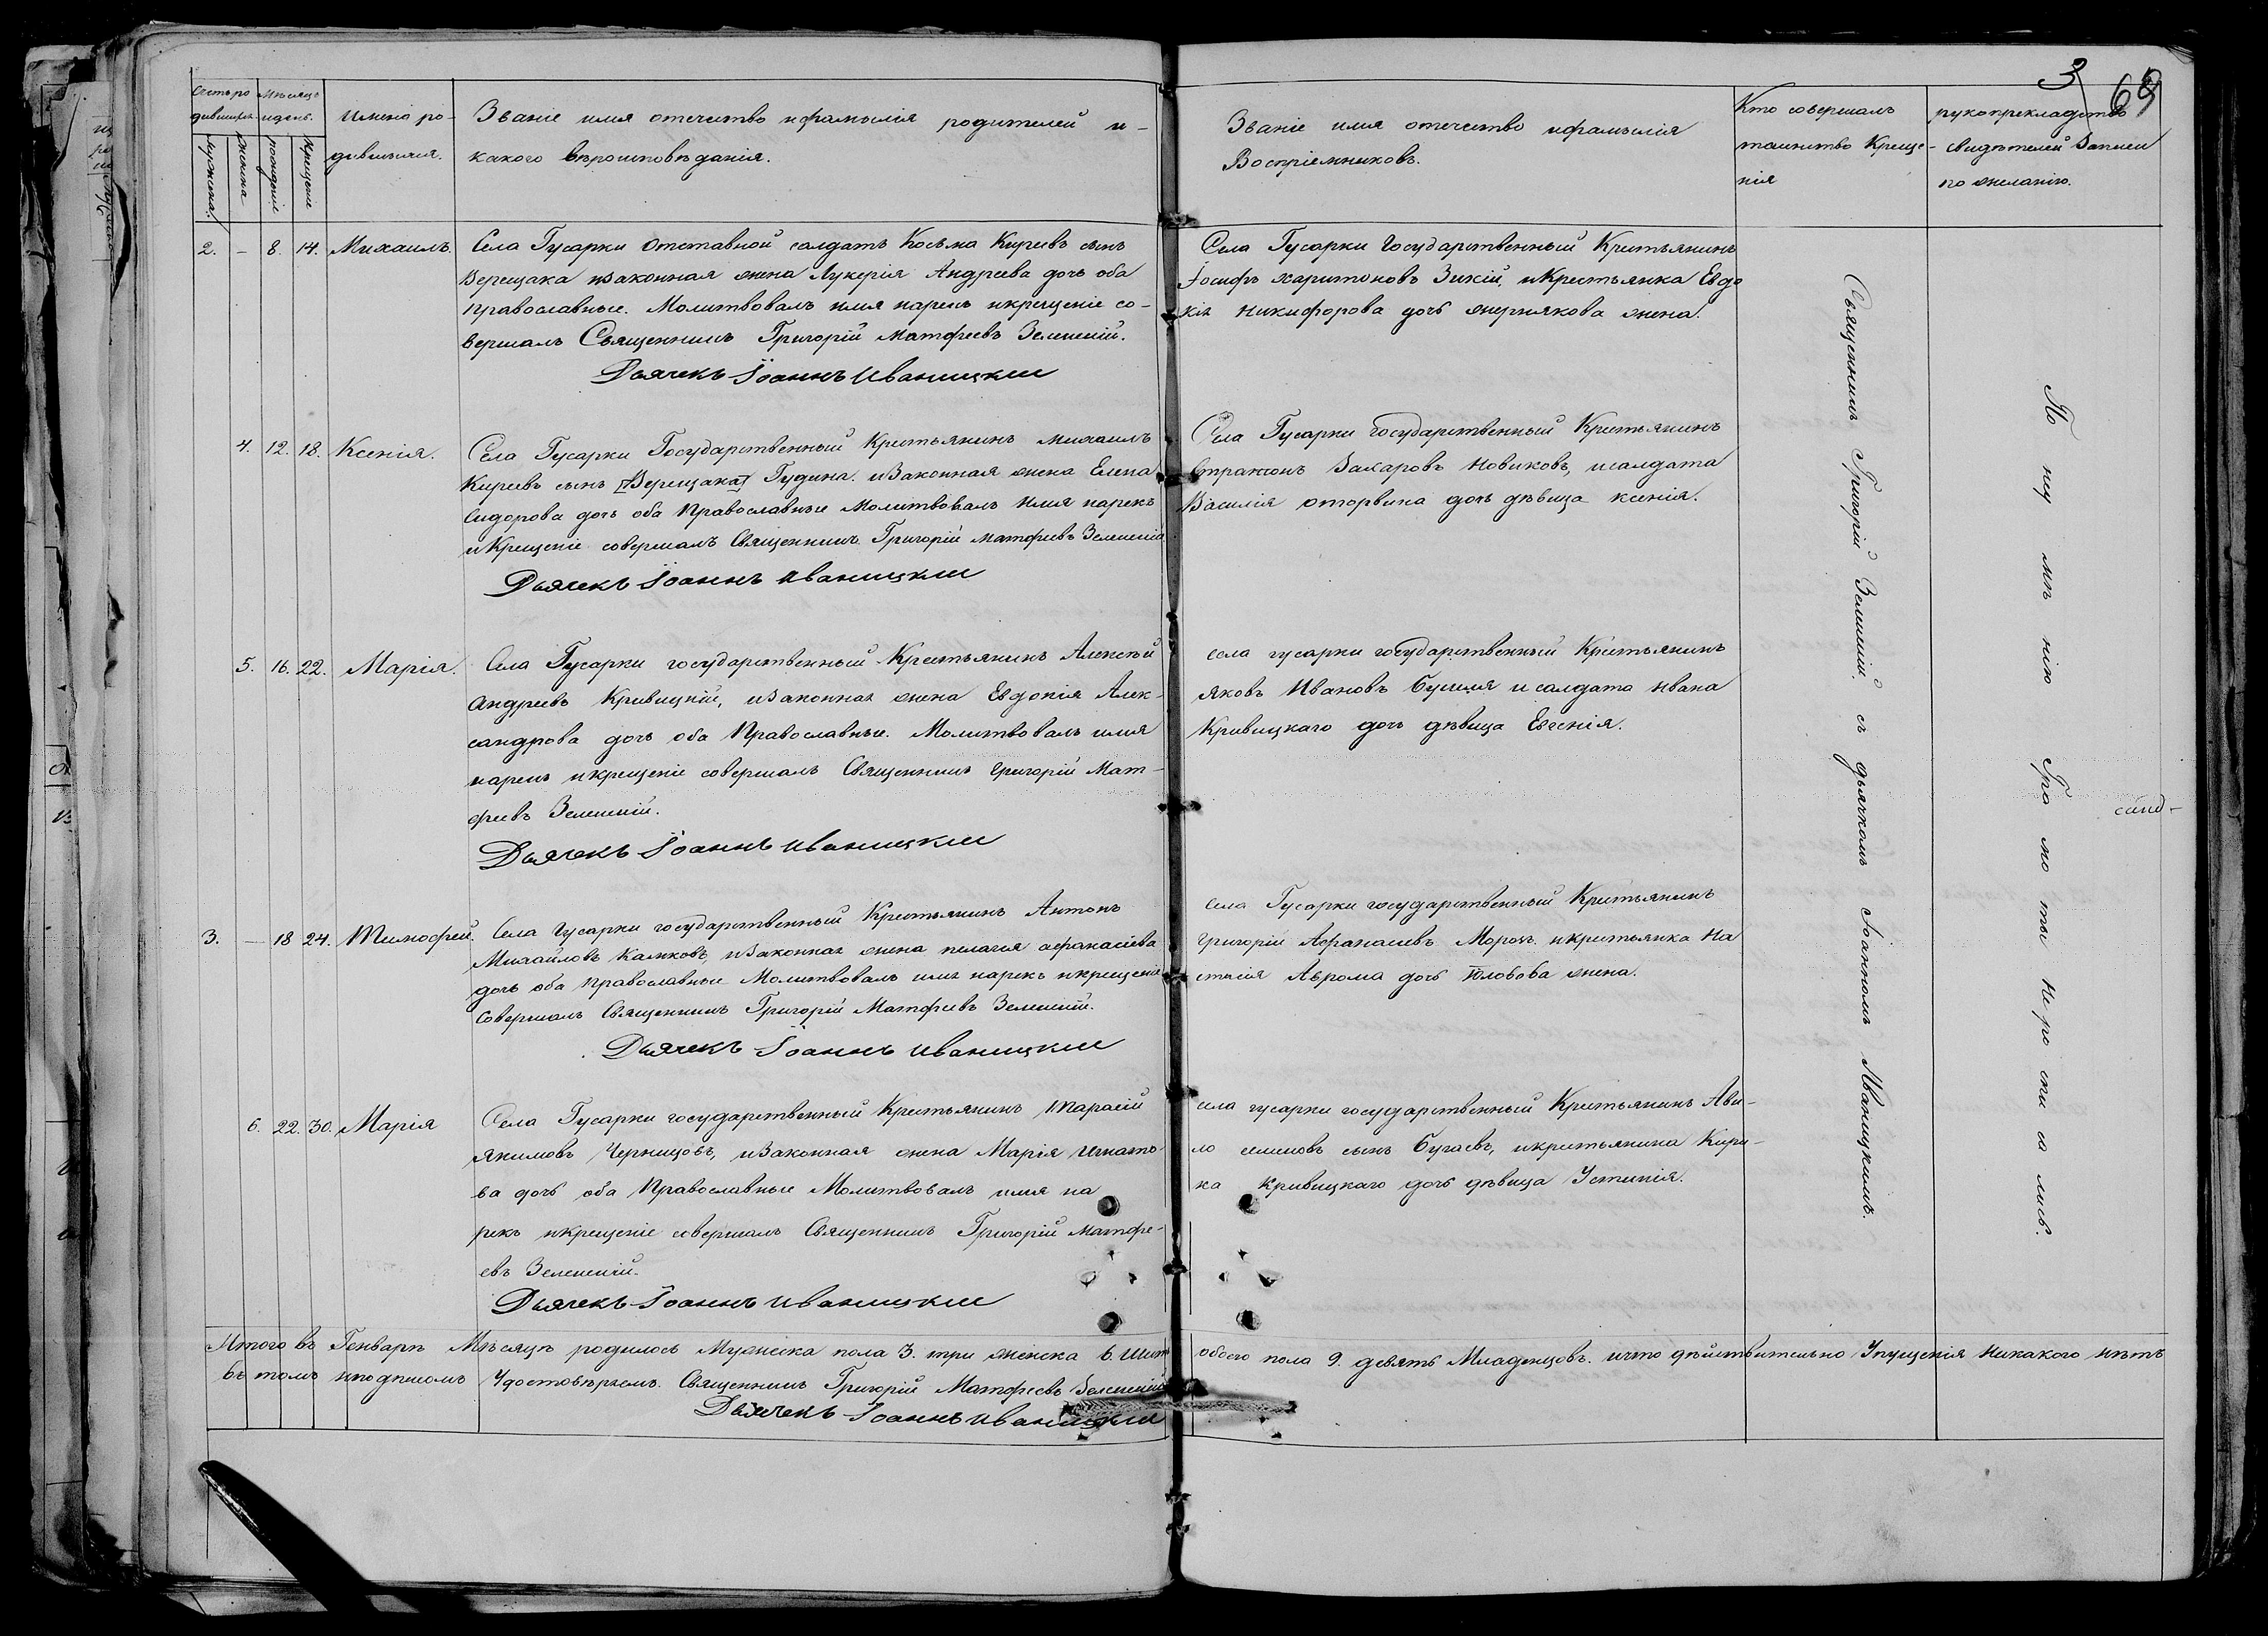 3
69
Счетъ ро
дившихся
Мѣсяцъ
и день.
мужеска.
женска
рожденія
крещенія
Имена ро-
дившихся.
Званіе имя отечество и фамылія родителей и-
какого вѣроисповѣданія.
Званіе имя отечество и фамылія
Воспріемниковъ.
Кто совершалъ
таинство Креще-
нія
рукоприкладство
свидѣтелей Записи
по желанію.
2. - 8. 14. Михаилъ.
Села Гусарки отставной салдатъ Косьма Киреевъ сынъ
Верещака и Законная жена Лукерія Андреева дочь оба
православные. Молитвовалъ имя нарекъ и крещеніе со-
вершалъ Священникъ Григорій Матфеевъ Зеленскій.
Дьячекъ Іоаннъ Иваницкий
Села Гусарки Государственный Крестьянинъ
Іосифъ харитоновъ Зикій, и Крестьянка Евдо
кія Никифорова дочь жернякова жена.
4. 12. 18. Ксенія.
Села Гусарки Государственный Крестьянинъ Михаилъ
Киреевъ сынъ [Верещака] Гудина. и Законная жена Елена
Сидорова дочь оба Православные Молитвовалъ Имя нарекъ
и Крещеніе совершалъ Священникъ Григорій Матфеевъ Зеленскій
Дьячекъ Іоаннъ Иваницкий
Села Гусарки Государственный Крестьянинъ
Стратонъ Захаровъ Новиковъ, и салдата
Василія оторвина дочь дѣвица ксенія.
5. 16. 22. Марія.
Села Гусарки государственный Крестьянинъ Алексѣй
Андреевъ Кривицкій, и Законная жена Евдокія Алек-
сандрова дочь оба Православные. Молитвовалъ имя
нарекъ и крещеніе совершалъ Священникъ Григорій Мат-
феевъ Зеленскій.
Дьячекъ Іоаннъ Иваницкий
села гусарки государственный Крестьянинъ
Яковъ Ивановъ и салдата Ивана
Кривицкаго дочь дѣвица Евгенія.
3. - 18 24. Тимофей.
Села Гусарки государственный Крестьянинъ Антонъ
Михайловъ Калиновъ, и Законная жена пелагея афанасіева
дочь оба православные Молитвовалъ имя нарекъ и крещеніе
Совершалъ Священникъ Григорій Матфеевъ Зеленскій.
Дьячекъ Іоаннъ Иваницкий
села Гусарки государственный Крестьянинъ
Григорій Афанасиевъ Морозъ. и крестьянка На
стасія Аврома дочь жена.
6. 22. 30. Марія
Села Гусарки государственный Крестьянинъ Тарасій
Якимовъ Черницовъ, и Законная жена Марія Игнато
ва дочь оба Православные Молитвовалъ имя на
рекъ и крещеніе совершалъ Священникъ Григорій Матфе-
евъ Зеленскій.
Дьячекъ Іоаннъ Иваницкий
села гусарки государственный Крестьянинъ Ави-
ло семеновъ сынъ Бугаевъ, и крестьянина Кири-
ка Кривицкаго дочь дѣвица Устинія.
Священникъ Григорій Зеленскій съ дьячкомъ Іоанномъ Иваницкимъ.
По неу мѣ нію Гра мо ты Не ро спи са лись.
Итого въ Генварѣ Мѣсяцѣ родилось Мужеска пола 3. три женска 6. шесть обоего пола 9. девять Младенцовъ. и что дѣйствительно Упущенія Никакого нѣтъ
въ томъ и подписомъ Удостовѣряемъ. Священникъ Григорій Матфеевъ Зеленскій
Дьячекъ Іоаннъ Иваницкий